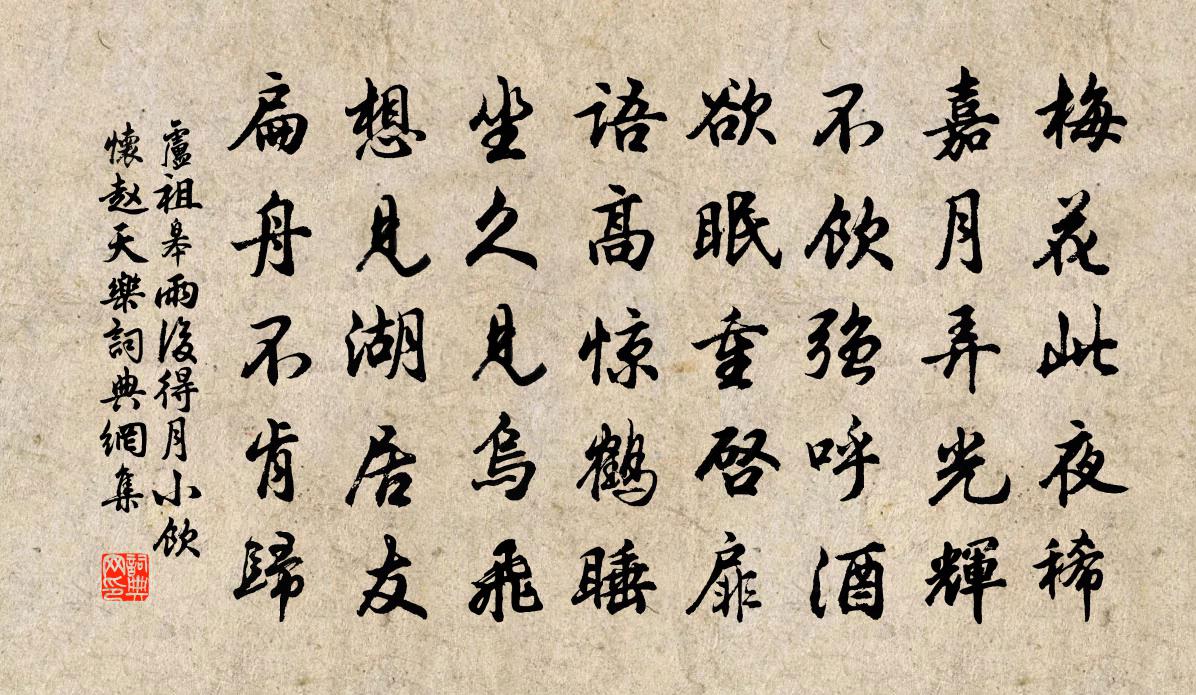 梅花此夜稀
嘉月弄光輝
不飲強呼酒
欲眠重啓扉
語高惊鶴睡
坐久見烏飛
想見湖居友
扁舟不肯歸
盧祖皋雨後得月小飲
懷趙天樂詞典網集
詞典
网印